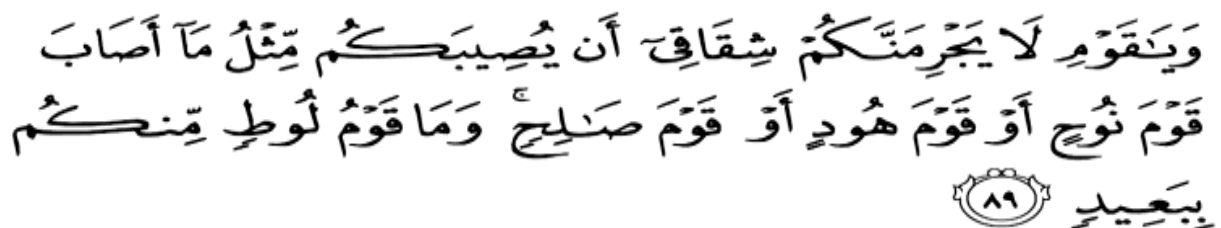 وَيَـٰقَوۡمِ لَا يَجۡرِمَنَّكُمۡ شِقَاقِيٓ أَن يُصِيبَكُم مِّثۡلُ مَآ أَصَابَ
قَوۡمَ نُوحٍ أَوۡ قَوۡمَ هُودٍ أَوۡ قَوۡمَ صَـٰلِحٖۚ وَمَا قَوۡمُ لُوطٖ مِّنكُم
بِبَعِيدٖ ٨٩